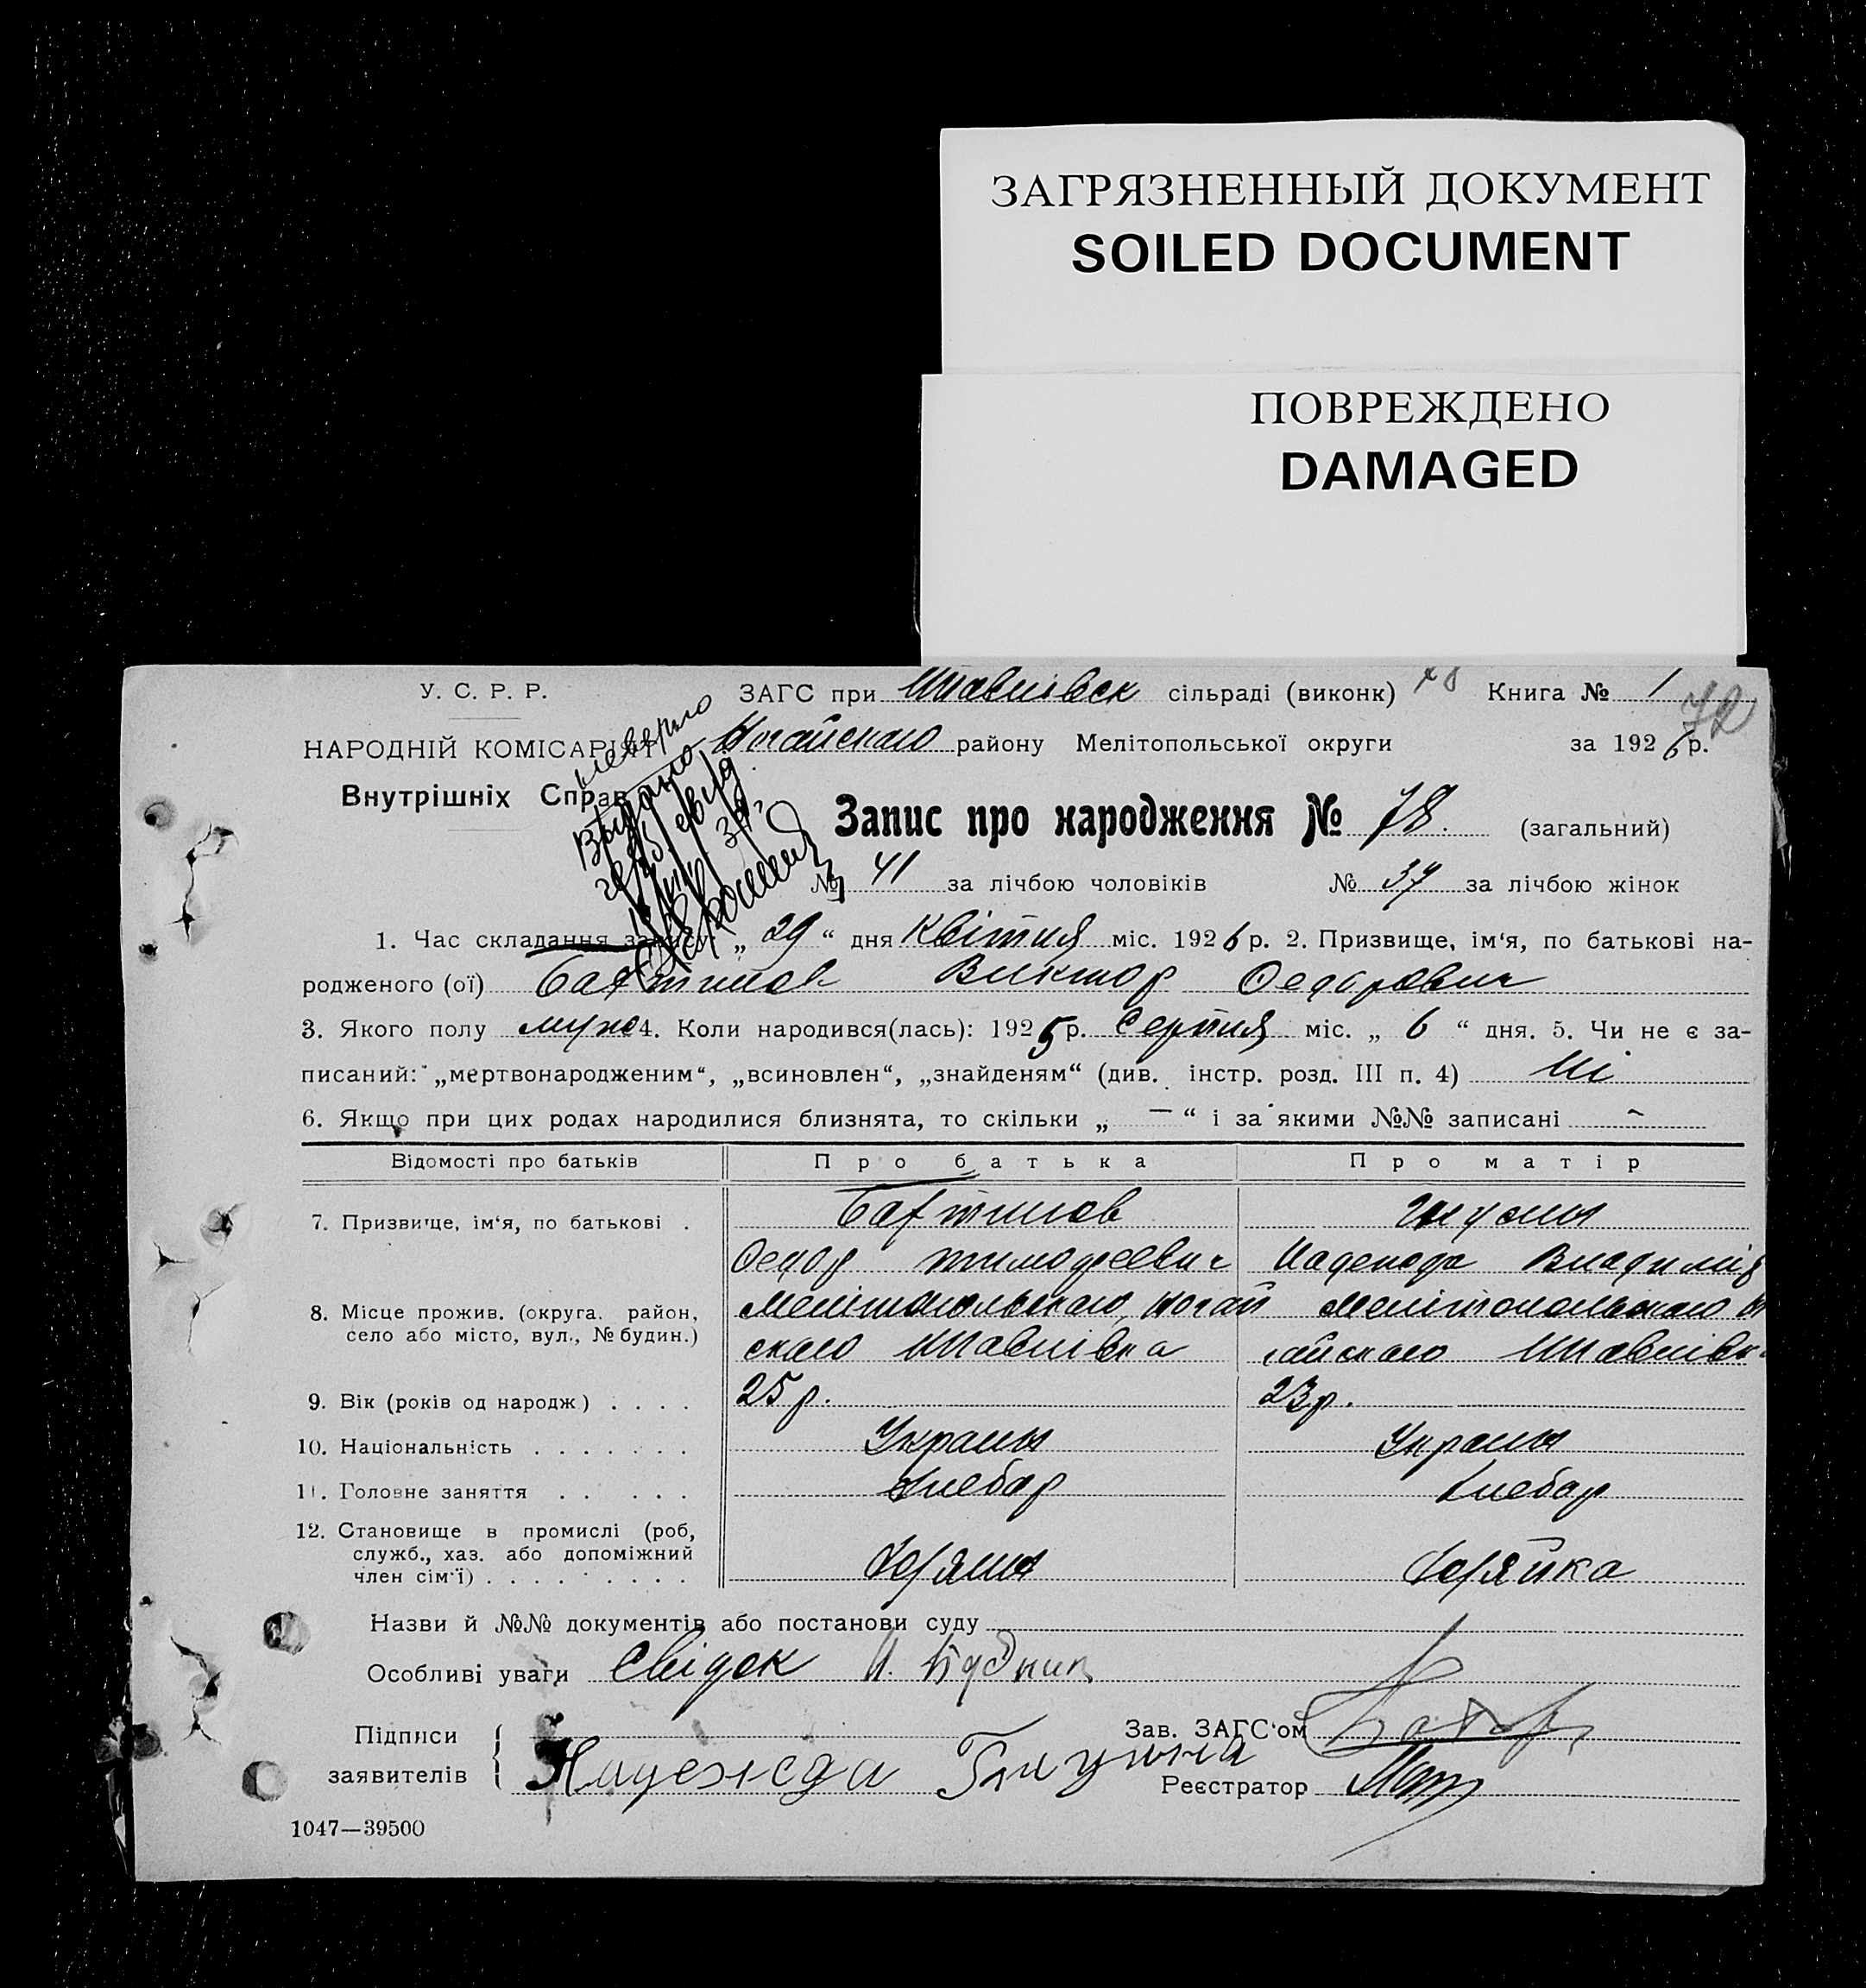 ЗАГРЯЗНЕННЫЙ ДОКУМЕНТ
SOILED DOCUMENT
ПОВРЕЖДЕНО
DAMAGED
У. С. Р. Р. ЗАГС при сільраді (виконк) Книга № 1
72
НАРОДНІЙ КОМІСАРІЯТ Ногайського району Мелітопольської округи за 1926 р.
Внутрішніх Справ
неверно
Выдано
Запис про народження № 78. (загальний)
№ 41 за лічбою чоловіків № 37 за лічбою жінок
1. Час складання запису: „ 29 “ дня Квітня міс. 1926 р. 2. Призвище, ім‘я, по батькові на-
родженого (ої) Виктор Федорович
3. Якого полу муж 4. Коли народився(лась): 1925 р. Серпня міс. „ 6 “ дня. 5. Чи не є за-
писаний: „мертвонародженим“, „всиновлен“, „знайденям“ (див. інстр. розд. III п. 4) Ні
6. Якщо при цих родах народилися близнята, то скільки „ — “ і за якими №№ записані ~
Відомості про батьків Про батька Про матір
7. Призвище, ім‘я, по батькові .
Федор Тимофеевич Надежда Владимір
8. Місце прожив. (округа. район,
село або місто, вул., № будин.)
9. Вік (років од народж) . . . . 25 р. 23 р.
10. Національність . . . . . . . Украин Украин
11. Головне заняття . . . . . . Хлебор Хлебор
12. Становище в промислі (роб,
служб., хаз. або допоміжний
член сім‘ї) . . . . . . . . . Хозяин Хозяйка
Назви й №№ документів або постанови суду
Особливі уваги Свідок
Підписи Зав. ЗАГС‘ом
заявителів Надежда Реєстратор
1047—39500